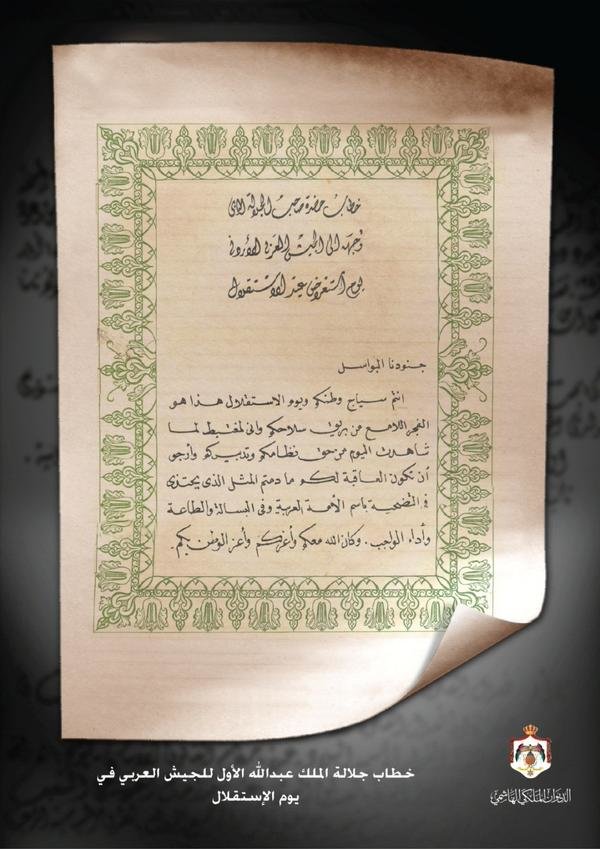 خطاب حضرة صاحب الجلالة الذي
وجهه الى الجيش العربي الأردني
يوم استعراض عيد الاستقلال
جنودنا البواسل
انتم سياج وطنكم ويوم الاستقلال هذا هو
الفجر اللامع من بريق سلاحكم واني لمغتبط لما
شاهدت اليوم من حسن نظامكم وتدريبكم وأرجو
أن تكون العاقبة لكم ما دمتم المثل الذي يحتذى
في التضحية باسم الأمة العربية وفي البسالة والطاعة
وأداء الواجب. وكان الله معكم وأعزكم وأعز الوطن بكم.
خطاب جلالة الملك عبدالله الأول للجيش العربي في
يوم الإستقلال
الديوان الملكي الهاشمي